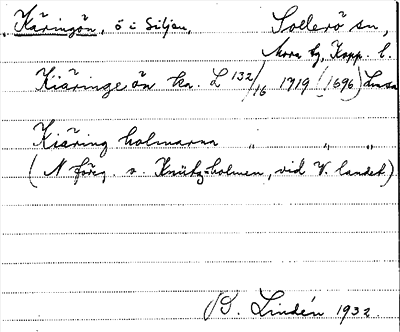 Käringön, ö i Siljan, Sollerö sn,
Mora tg, Kopp. l.
Kiäringe ön ka. L 132/16 1719 (1696) Lmsa
Kiäring holmarna " " "
(N föreg. o. Knützholmen, vid V. landet.)
B. Lindén 1932.